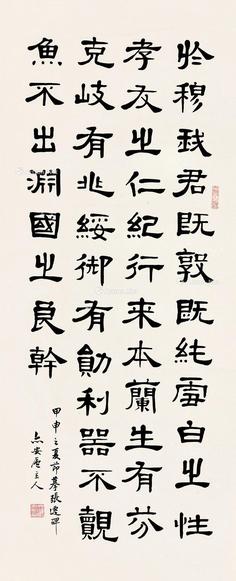 於穆我君既敦既純雪白之性
孝友之仁紀行来本蘭生有芬
克岐有兆綏御有勛利器不覿
魚不出淵國之良幹
甲申之夏節摹張遷碑
安主人